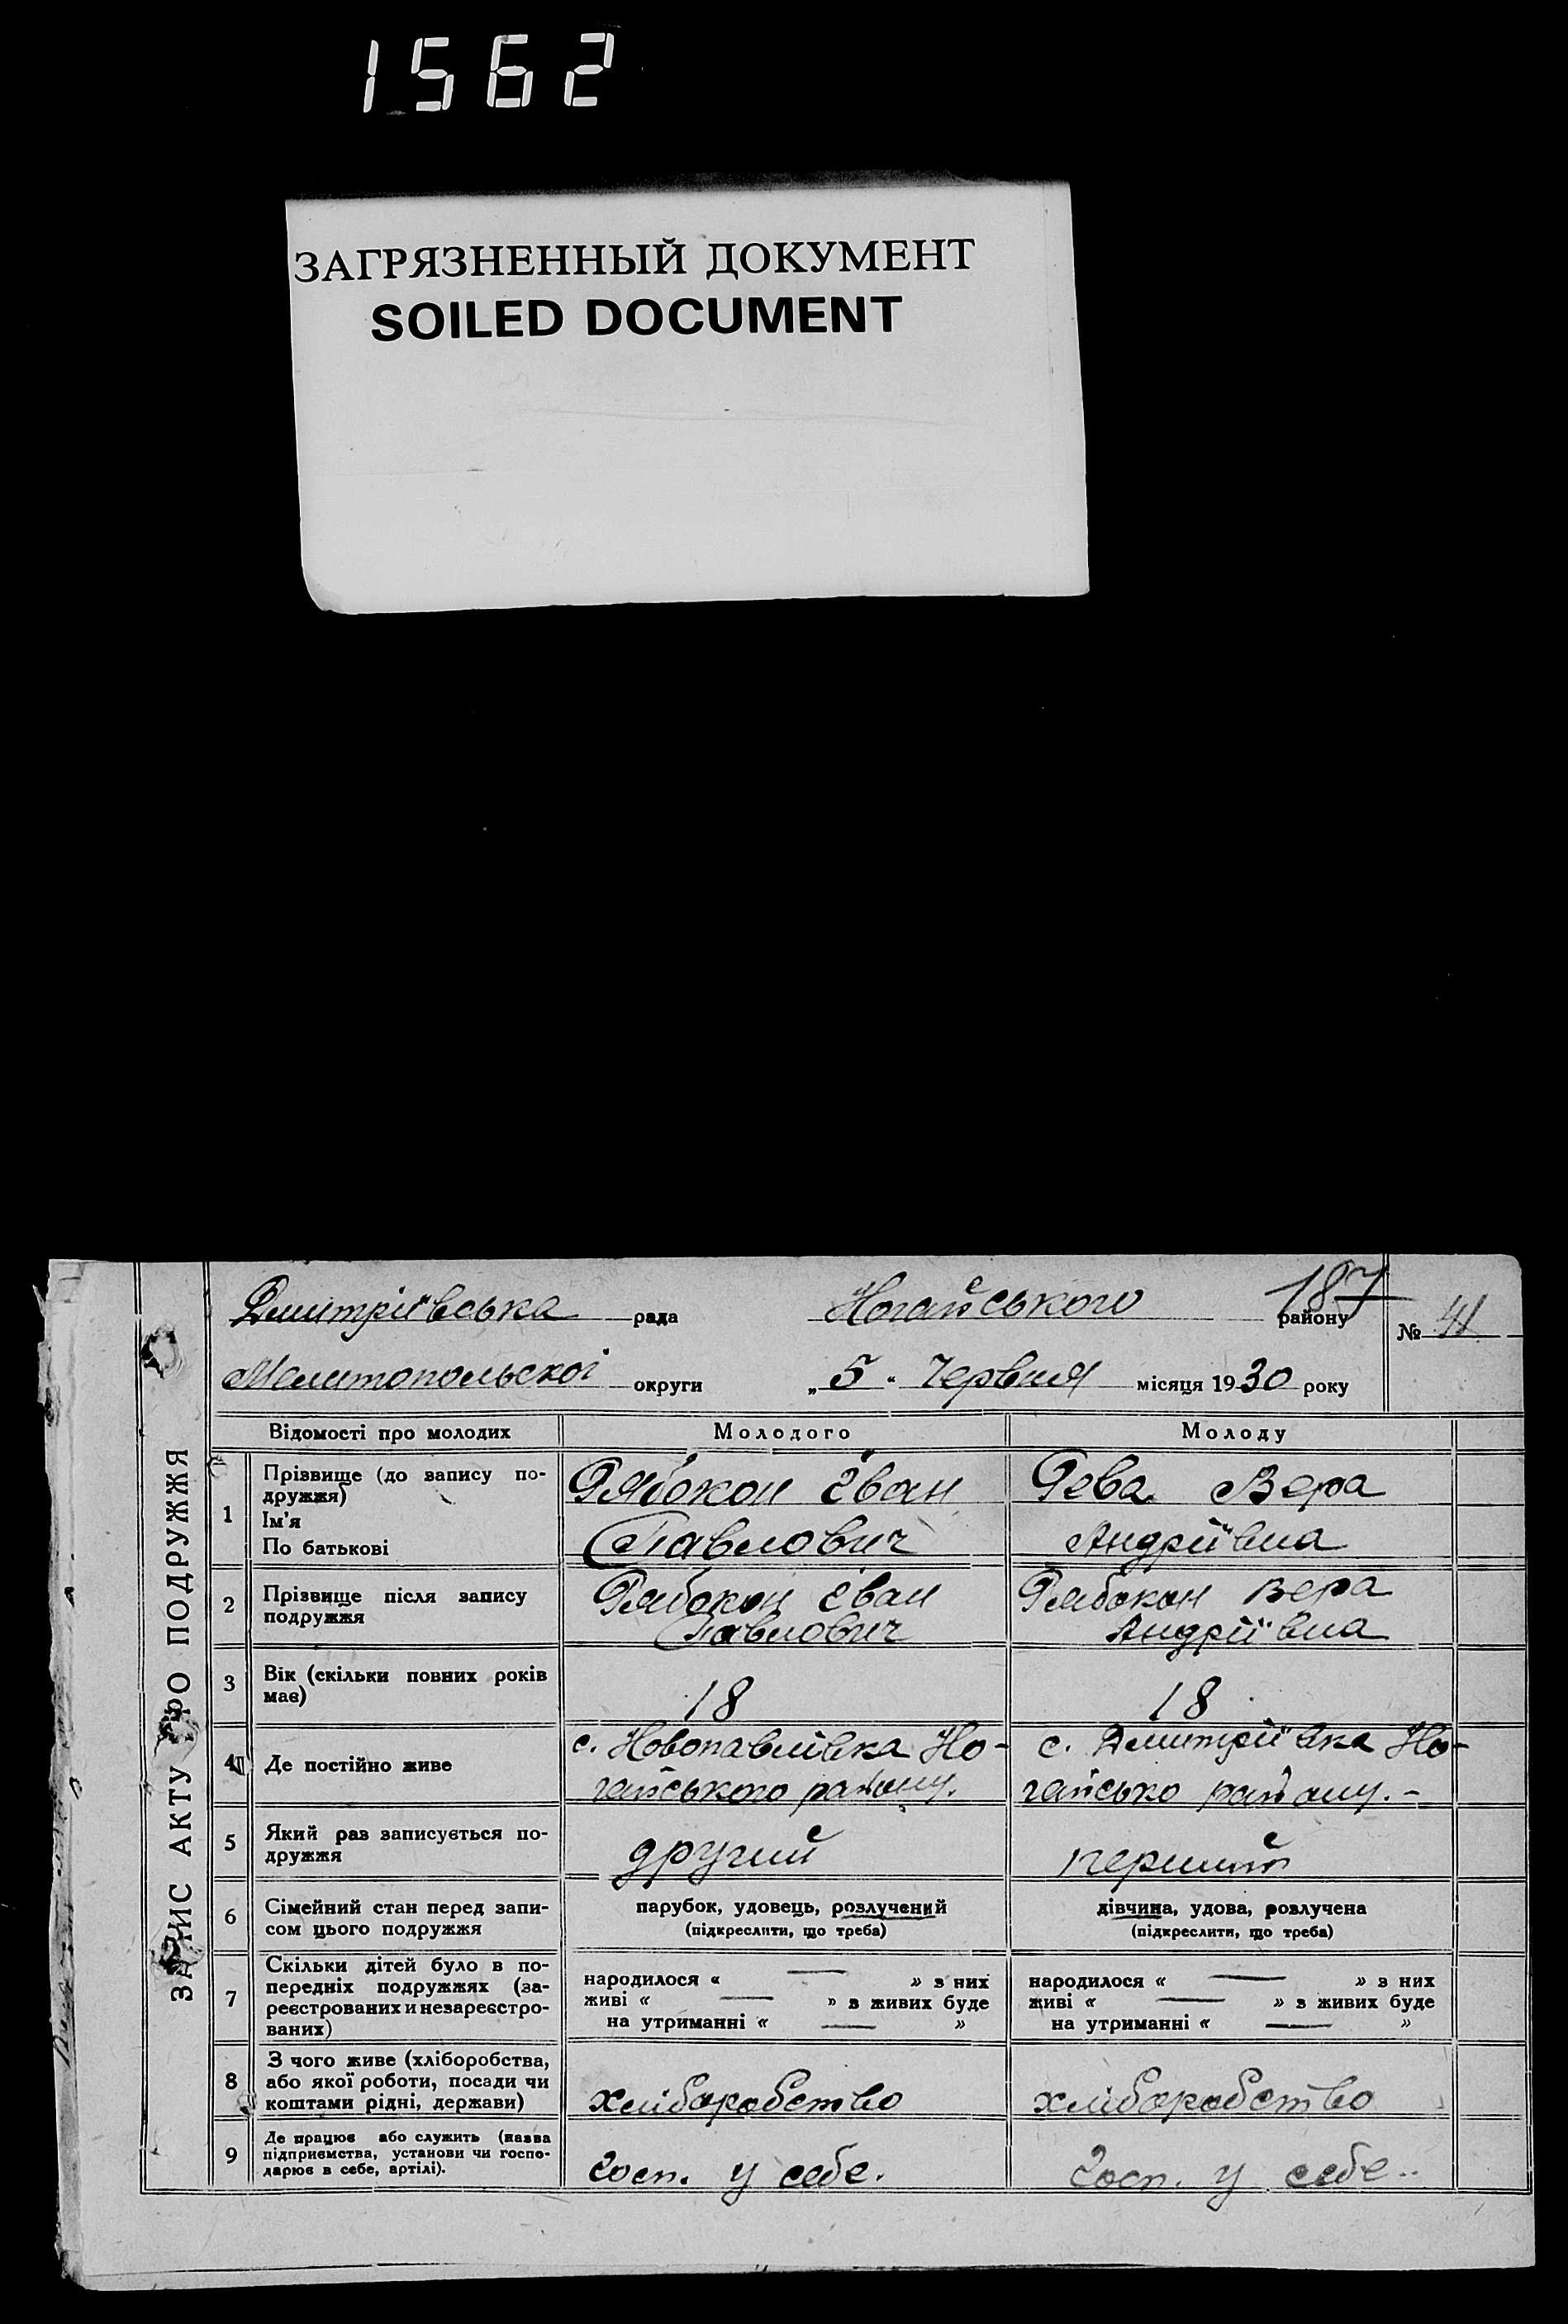 1562
ЗАГРЯЗНЕННЫЙ ДОКУМЕНТ
SOILED DOCUMENT
187
Дмитріївська рада Ногайського району № 41
Мелитопольскоі округи „5" Червня місяця 1930 року
ЗАПИС АКТУ ПРО ПОДРУЖЖЯ
Відомості про молодих Молодого Молоду
1 Прізвище (до запису по-
дружжя)
Ім'я
По батькові
Рябокон Іван
Павлович
Рева Вера
Андріївна
2 Прізвище після запису
подружжя
Рябокон Іван
Павлович
Рябокон Вера
Андріївна
3 Вік (скільки повних років
має)
18
18
4 Де постійно живе
с. Новопавлівка Но-
гайського району.
с. Дмитріївка Но-
гайсько району. -
5 Який раз записується по-
дружжя
другий
перший
6 Сімейний стан перед запи-
сом цього подружжя
парубок, удовець, розлучений
(підкреслити, що треба)
дівчина, удова, розлучена
(підкреслити, що треба)
7 Скільки дітей було в по-
передніх подружжях (за-
реєстрованих и незареєстро-
ваних)
народилося « — » з них
живі « — » з живих буде
на утриманні « — »
народилося « — » з них
живі « — » з живих буде
на утриманні « — »
8 З чого живе (хліборобства,
або якої роботи, посади чи
коштами рідні, держави)
хліборобство
хліборобство
9 Де працює або служить (назва
підприємства, установи чи госпо-
дарює в себе, артілі).
Госп. у себе.
Госп. у себе..